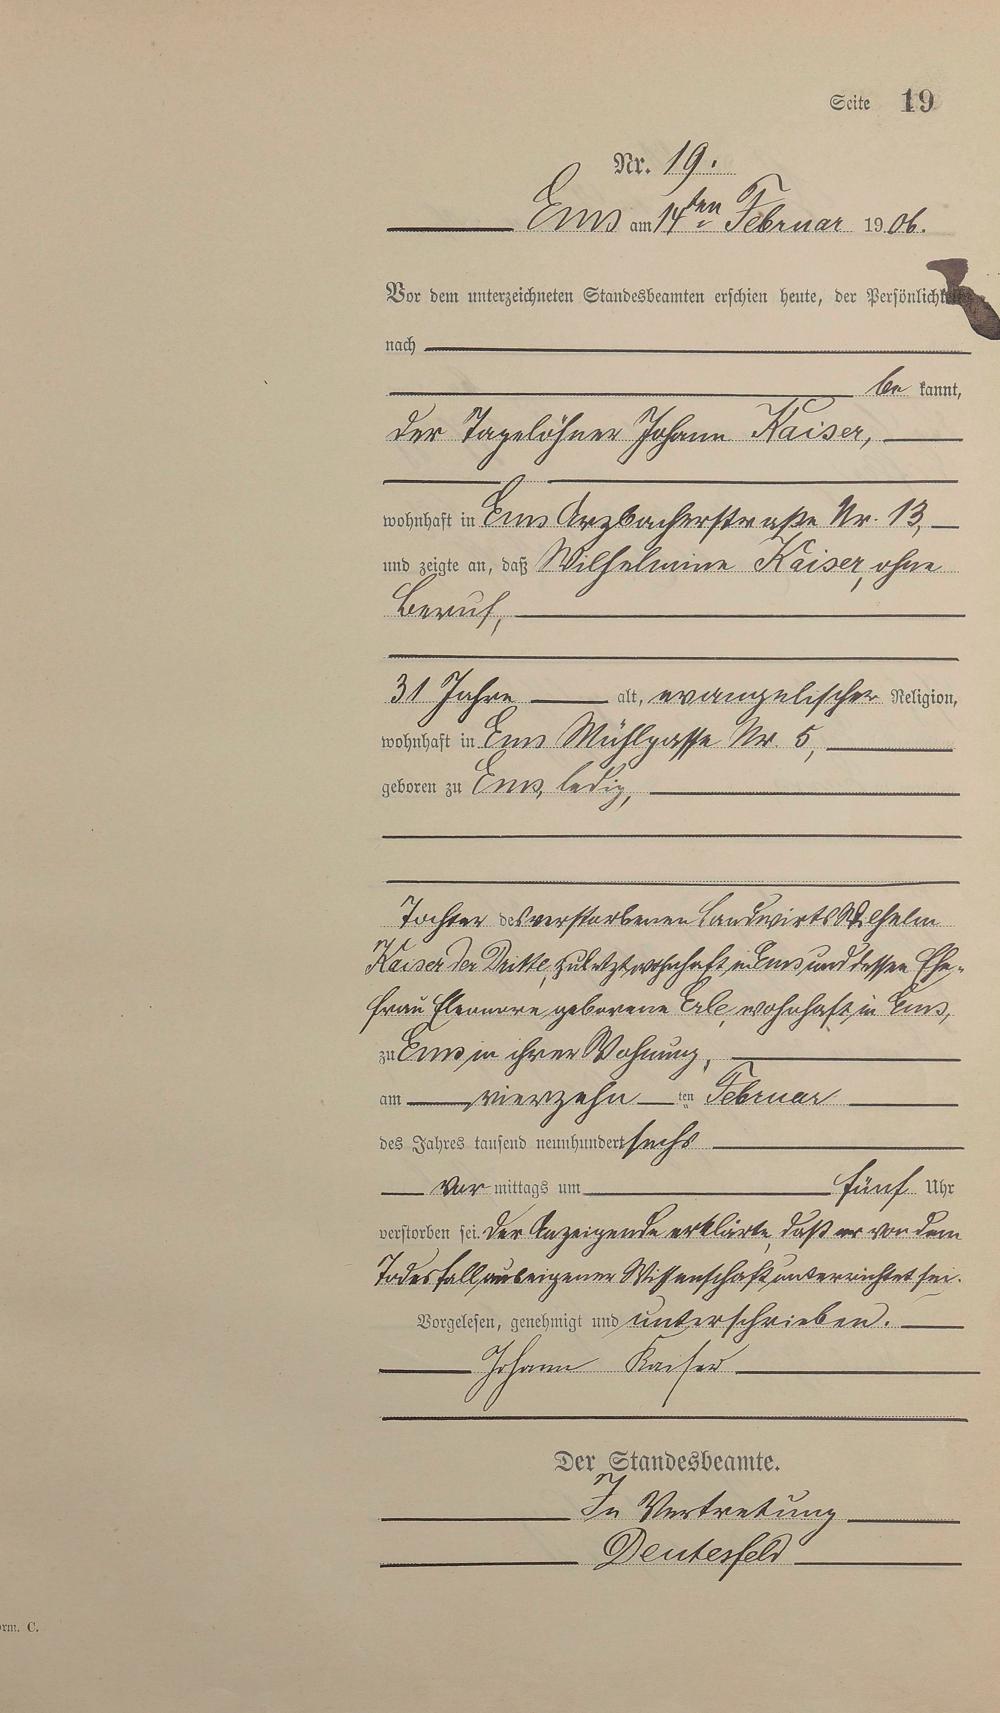 Seite 19
Nr. 19.
Ems am 14ten Februar 1906.
Vor dem unterzeichneten Standesbeamten erschien heute, der Persönlichkeit
nach
be kannt,
der Tagelöhner Johann Kaiser,
wohnhaft in Ems Arzbacherstraße Nr. 13,
und zeigte an, daß Wilhelmine Kaiser, ohne
Beruf,
31 Jahre alt, evangelischer Religion,
wohnhaft in Ems Mühlgasse Nr. 5,
geboren zu Ems, ledig,
Tochter des verstorbenen Landwirts Wilhelm
Kaiser der Dritte, zuletzt wohnhaft in Ems und dessen Ehe-
frau Eleonore geborene Erle, wohnhaft in Ems,
zu Ems in ihrer Wohnung,
am vierzehn ten Februar
des Jahres tausend neunhundert sechs
vor mittags um fünf Uhr
verstorben sei. Der Anzeigende erklärte, daß er von dem
Todesfall aus eigener Wissenschaft unterrichtet sei.
Vorgelesen, genehmigt und unterschrieben.
Johann Kaiser
Der Standesbeamte.
In Vertretung
Deutesfeld
orm. C.